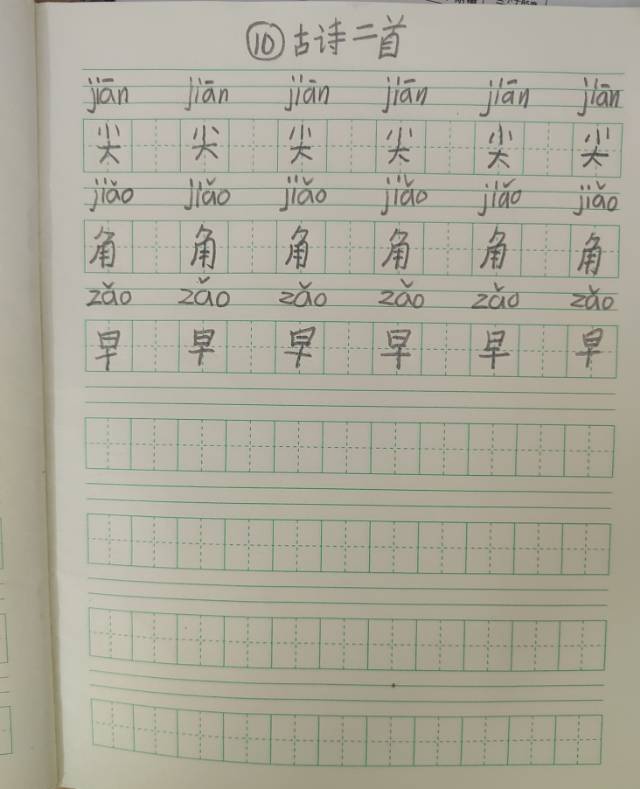 ⑩古诗二首
jiān jiān jiān jiān jiān jiān
尖 尖 尖 尖 尖 尖
jiǎo jiǎo jiǎo jiǎo jiǎo jiǎo
角 角 角 角 角 角
zǎo zǎo zǎo zǎo zǎo zǎo
早 早 早 早 早 早